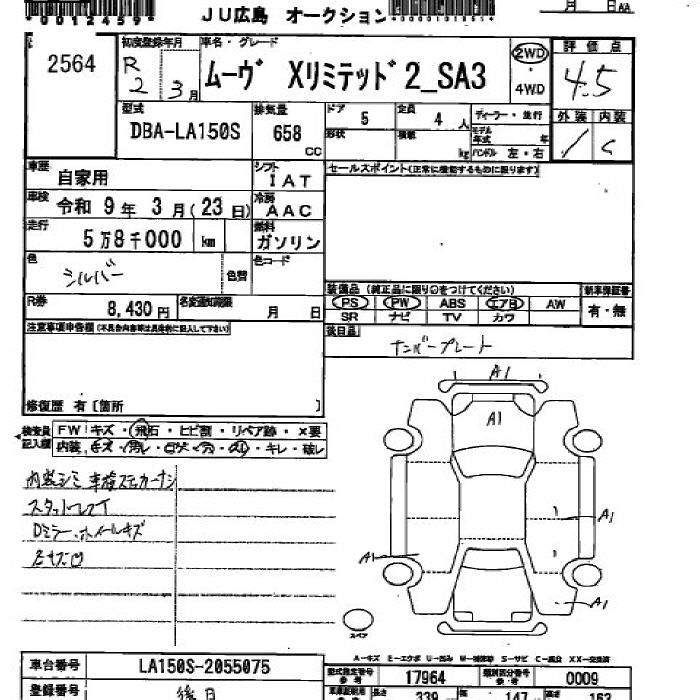 *0012459*
JU広島 オークション
月 日 AA
2564
初度登録年月
R 2 3月
車名・グレード
ムーヴ Xリミテッド2_SA3
2WD ・ 4WD
評価点
4.5
型式
DBA-LA150S
排気量
658 CC
ドア 5
定員 4 人
形状
積載 kg
ディーラー・並行
モデル年式 年
ハンドル 左・右
外装 内装
C
車歴 自家用
シフト IAT
セールスポイント(正常に機能するものに限ります)
車検 令和 9年 3月(23日)
冷房 AAC
走行 5万8千000 km
燃料 ガソリン
色 シルバー 色替
色コード
装備品(純正品に限り○をつけてください)
新車保証書
PS PW ABS エアB AW
有・無
SR ナビ TV カワ
R券 8,430円
名変通知期限 月 日
後日品
ナンバープレート
注意事項申告欄(不具合内容等は具体的に記入して下さい)
修復歴 有〔箇所 〕
検査員記入欄
FW キズ・飛石・ヒビ割・リペア跡・X要
内装 キズ・汚れ・コゲ・穴・スレ・キレ・破レ
内装シミ 車検ステッカーナシ
スタットレスタイヤ
Dミラー、ホイールキズ
A1
A1
A1
A1
A1
スペア
A-キズ E-エクボ U-凹み W-補修跡 S-サビ C-腐食 XX-交換済
車台番号 LA150S-2055075
型式指定番号 参考 17964
類別区分番号 参考 0009
登録番号 後日
長さ 339
147
163